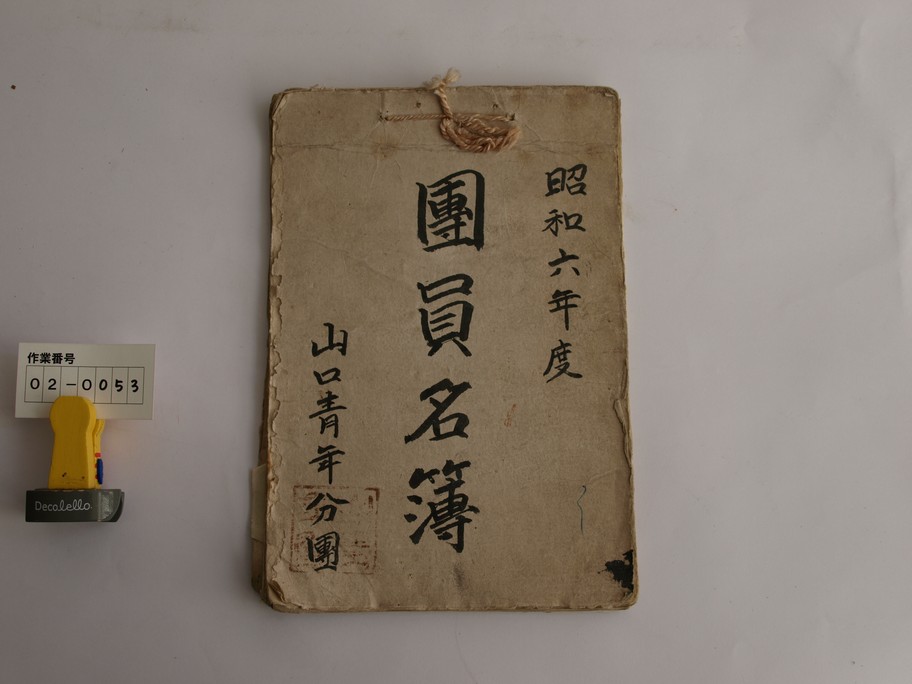 昭和六年度
團員名簿
山口青年分團
作業番号
02-0053
Decolello